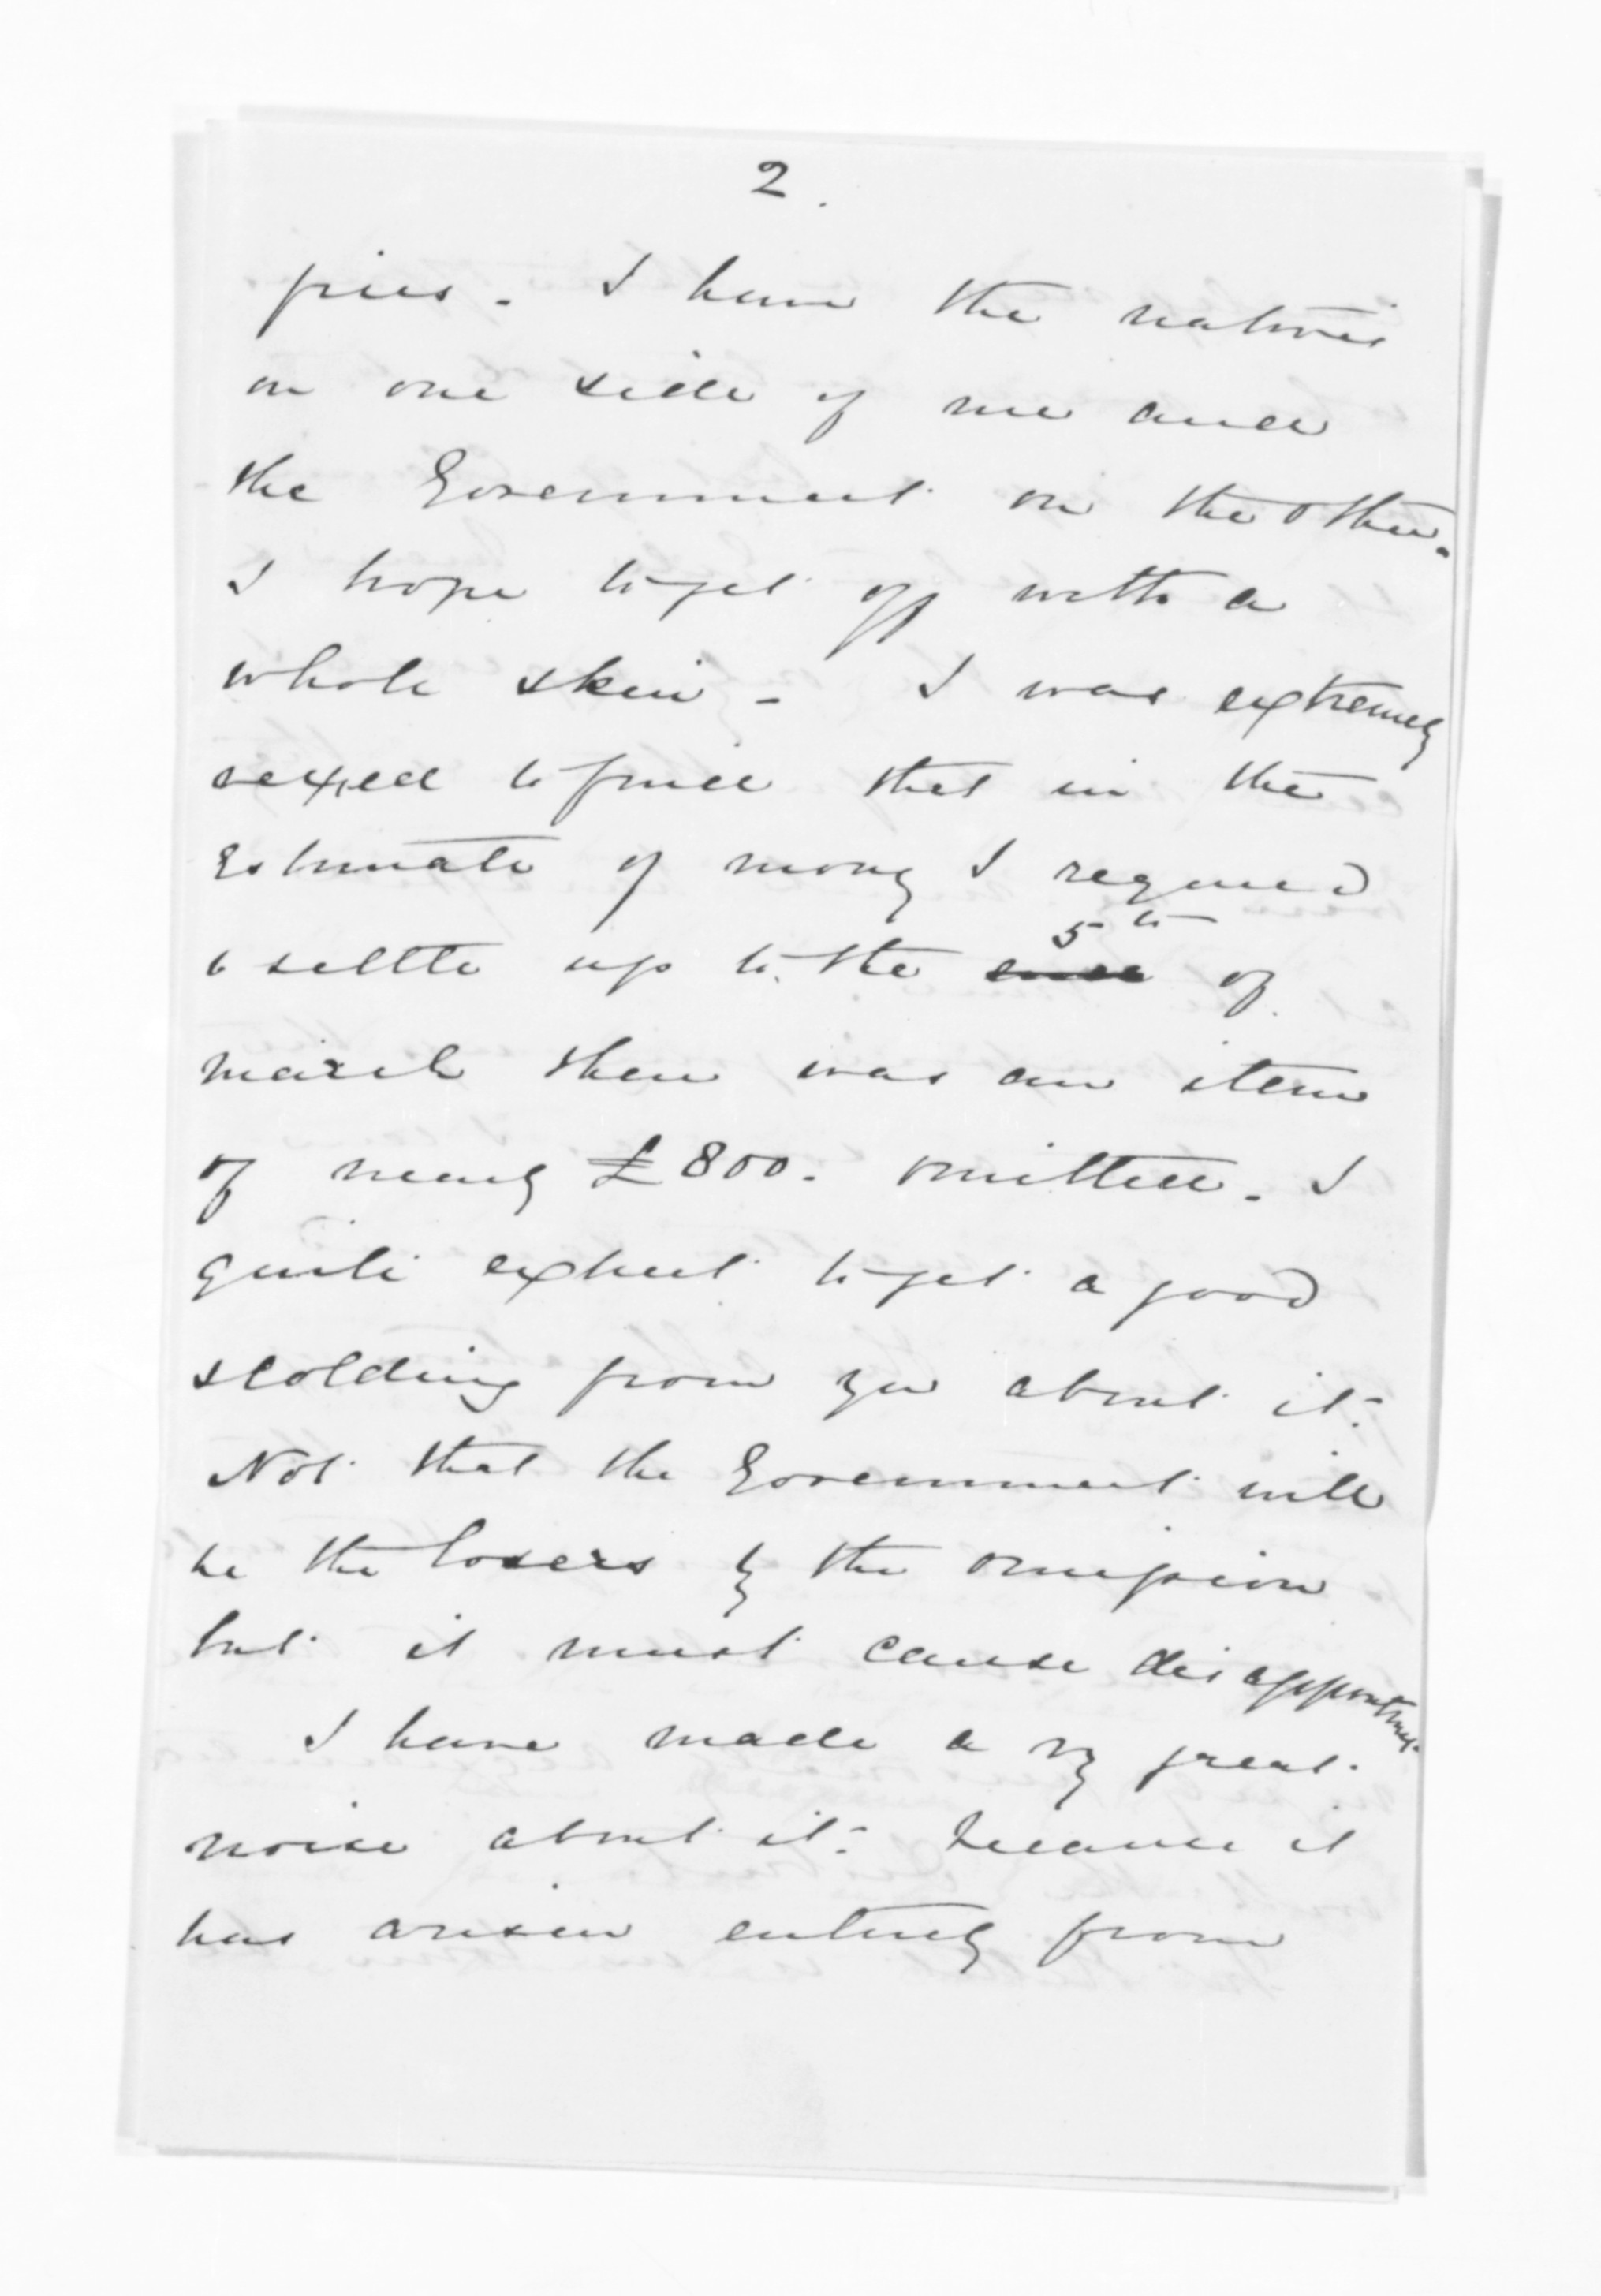 2.
fires - I have the natives
on one side of me and
the Government on the other.
I hope to get off with a
whole skin - I was extremely
vexed to find that in the
Estimate of money I required
to settle up to the 5th of
march there was an item
of nearly £800. omitted. I
quite expect to get a good
scolding from you about it.
Not that the Government will
be the losers by the omission
but it must cause disappointment.
I have made a very great
noise about it. because it
has arisen entirely from